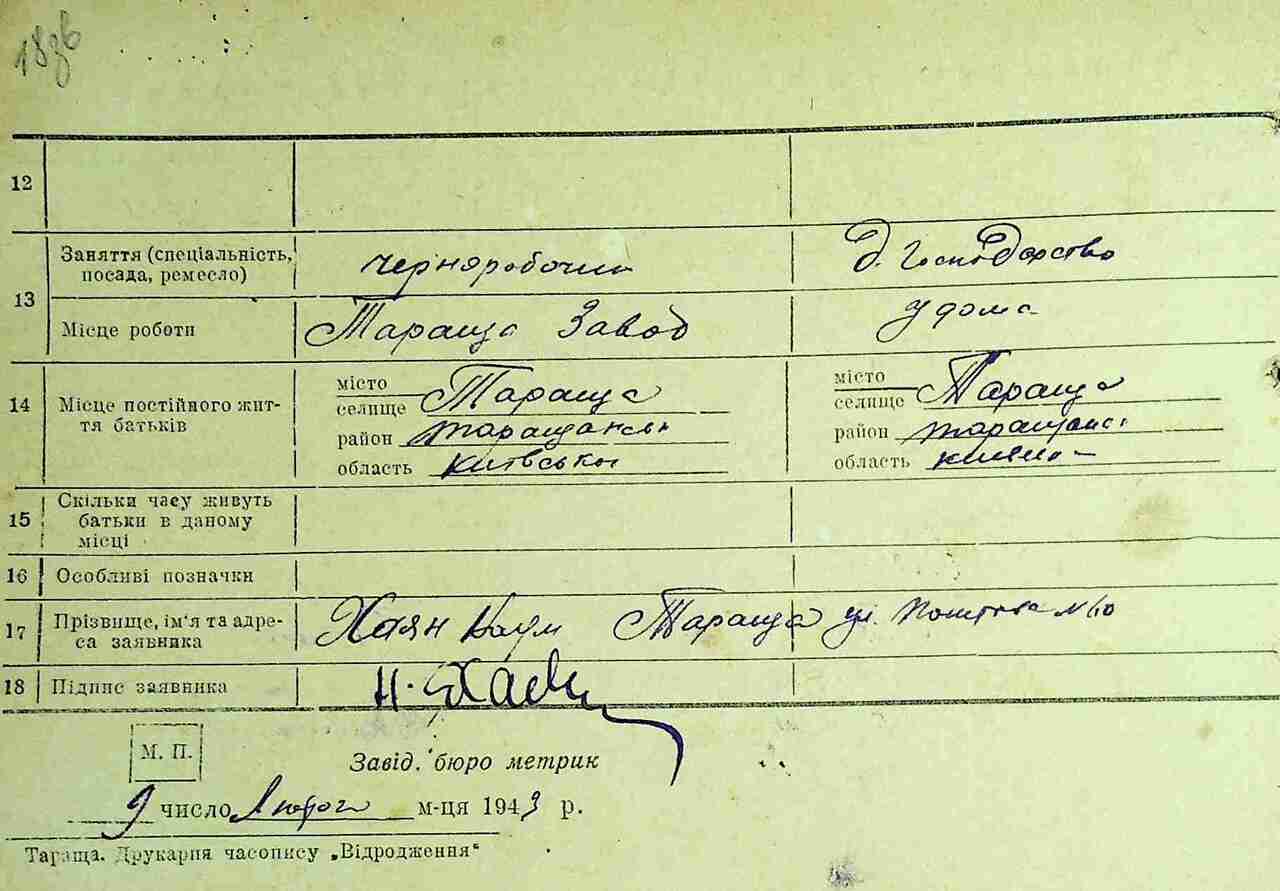 12
13
Заняття (спеціальність, посада, ремесло)
чернробочий
Д. Господарство
Місце роботи
Тараща Завод
у дома
14
Місце постійного жит-
тя батьків
місто
селище Тараща
район таращанськ
область київської
місто
селище Тараща
район таращанс
область
15
Скільки часу живуть
батьки в даному
місці
16
Особливі позначки
17
Прізвище, ім'я та адре-
са заявника
Хаян Наум Тараща ул.
18
Підпис заявника
М. П.
Завід. бюро метрик
9 число Лютого м-ця 1943 р.
Тараща. Друкарня часопису „Відродження"